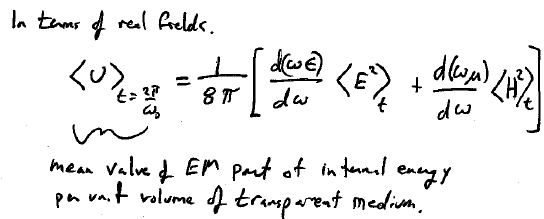 In terms of real fields.
⟨U⟩_{t=2π/ω₀} = 1/8π [ d(ωϵ)/dω ⟨E²⟩_t + d(ωμ)/dω ⟨H²⟩_t ]
mean value of EM part of internal energy
per unit volume of transparent medium.